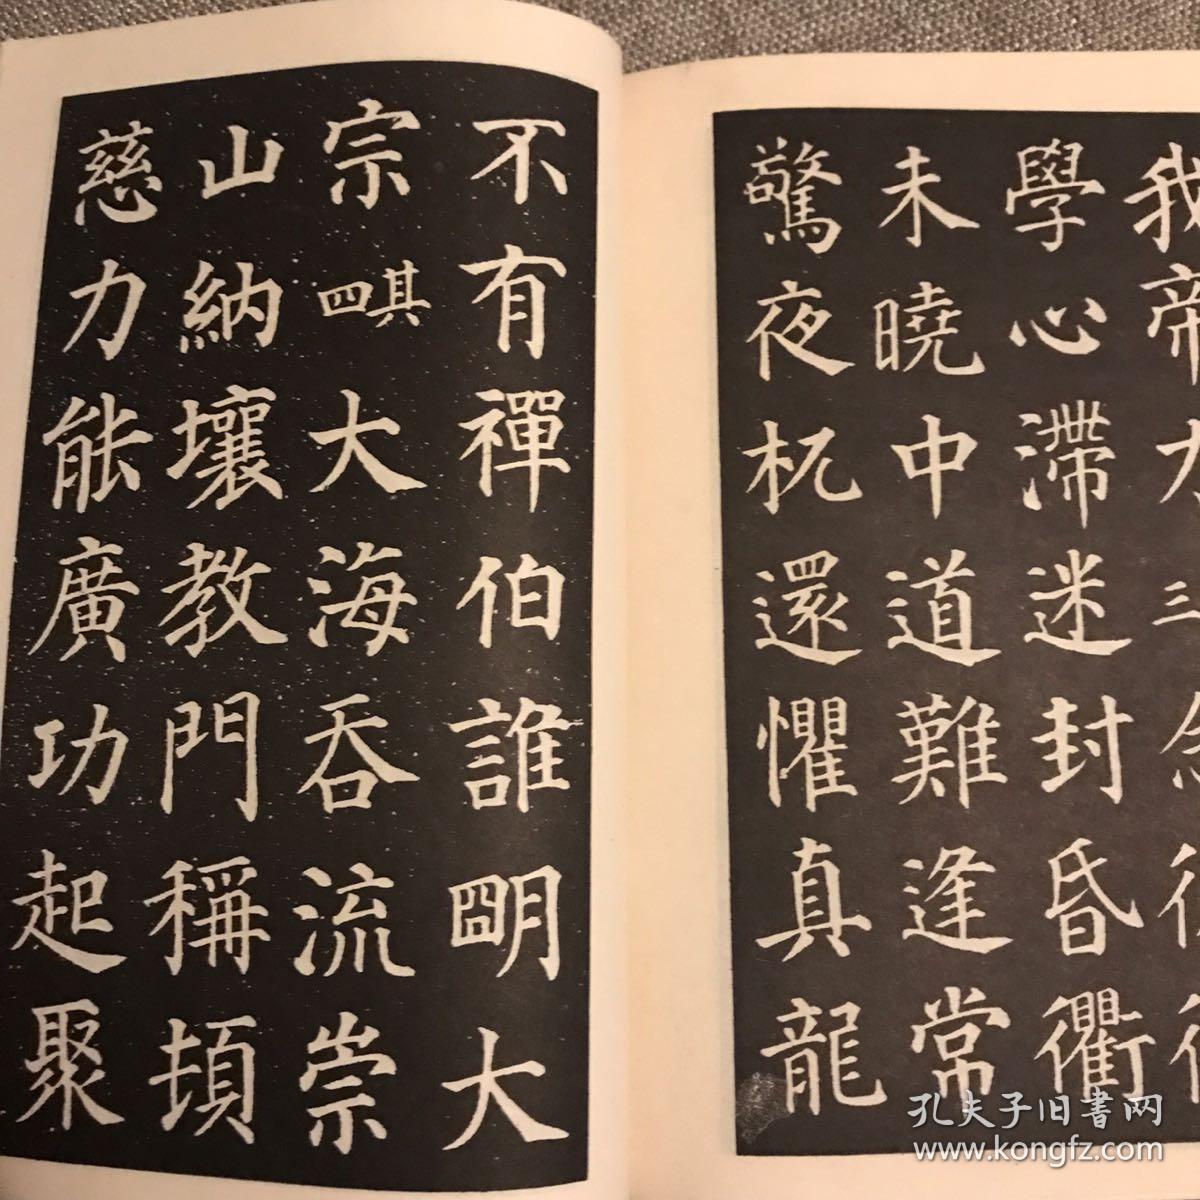 我帝力三念彼後
學心滯迷封昏衢
未曉中道難逢常
驚夜杌還懼真龍
不有禪伯誰明大
宗其四大海吞流崇
山納壤教門稱頓
慈力能廣功起聚
孔夫子旧書网
www.kongfz.com